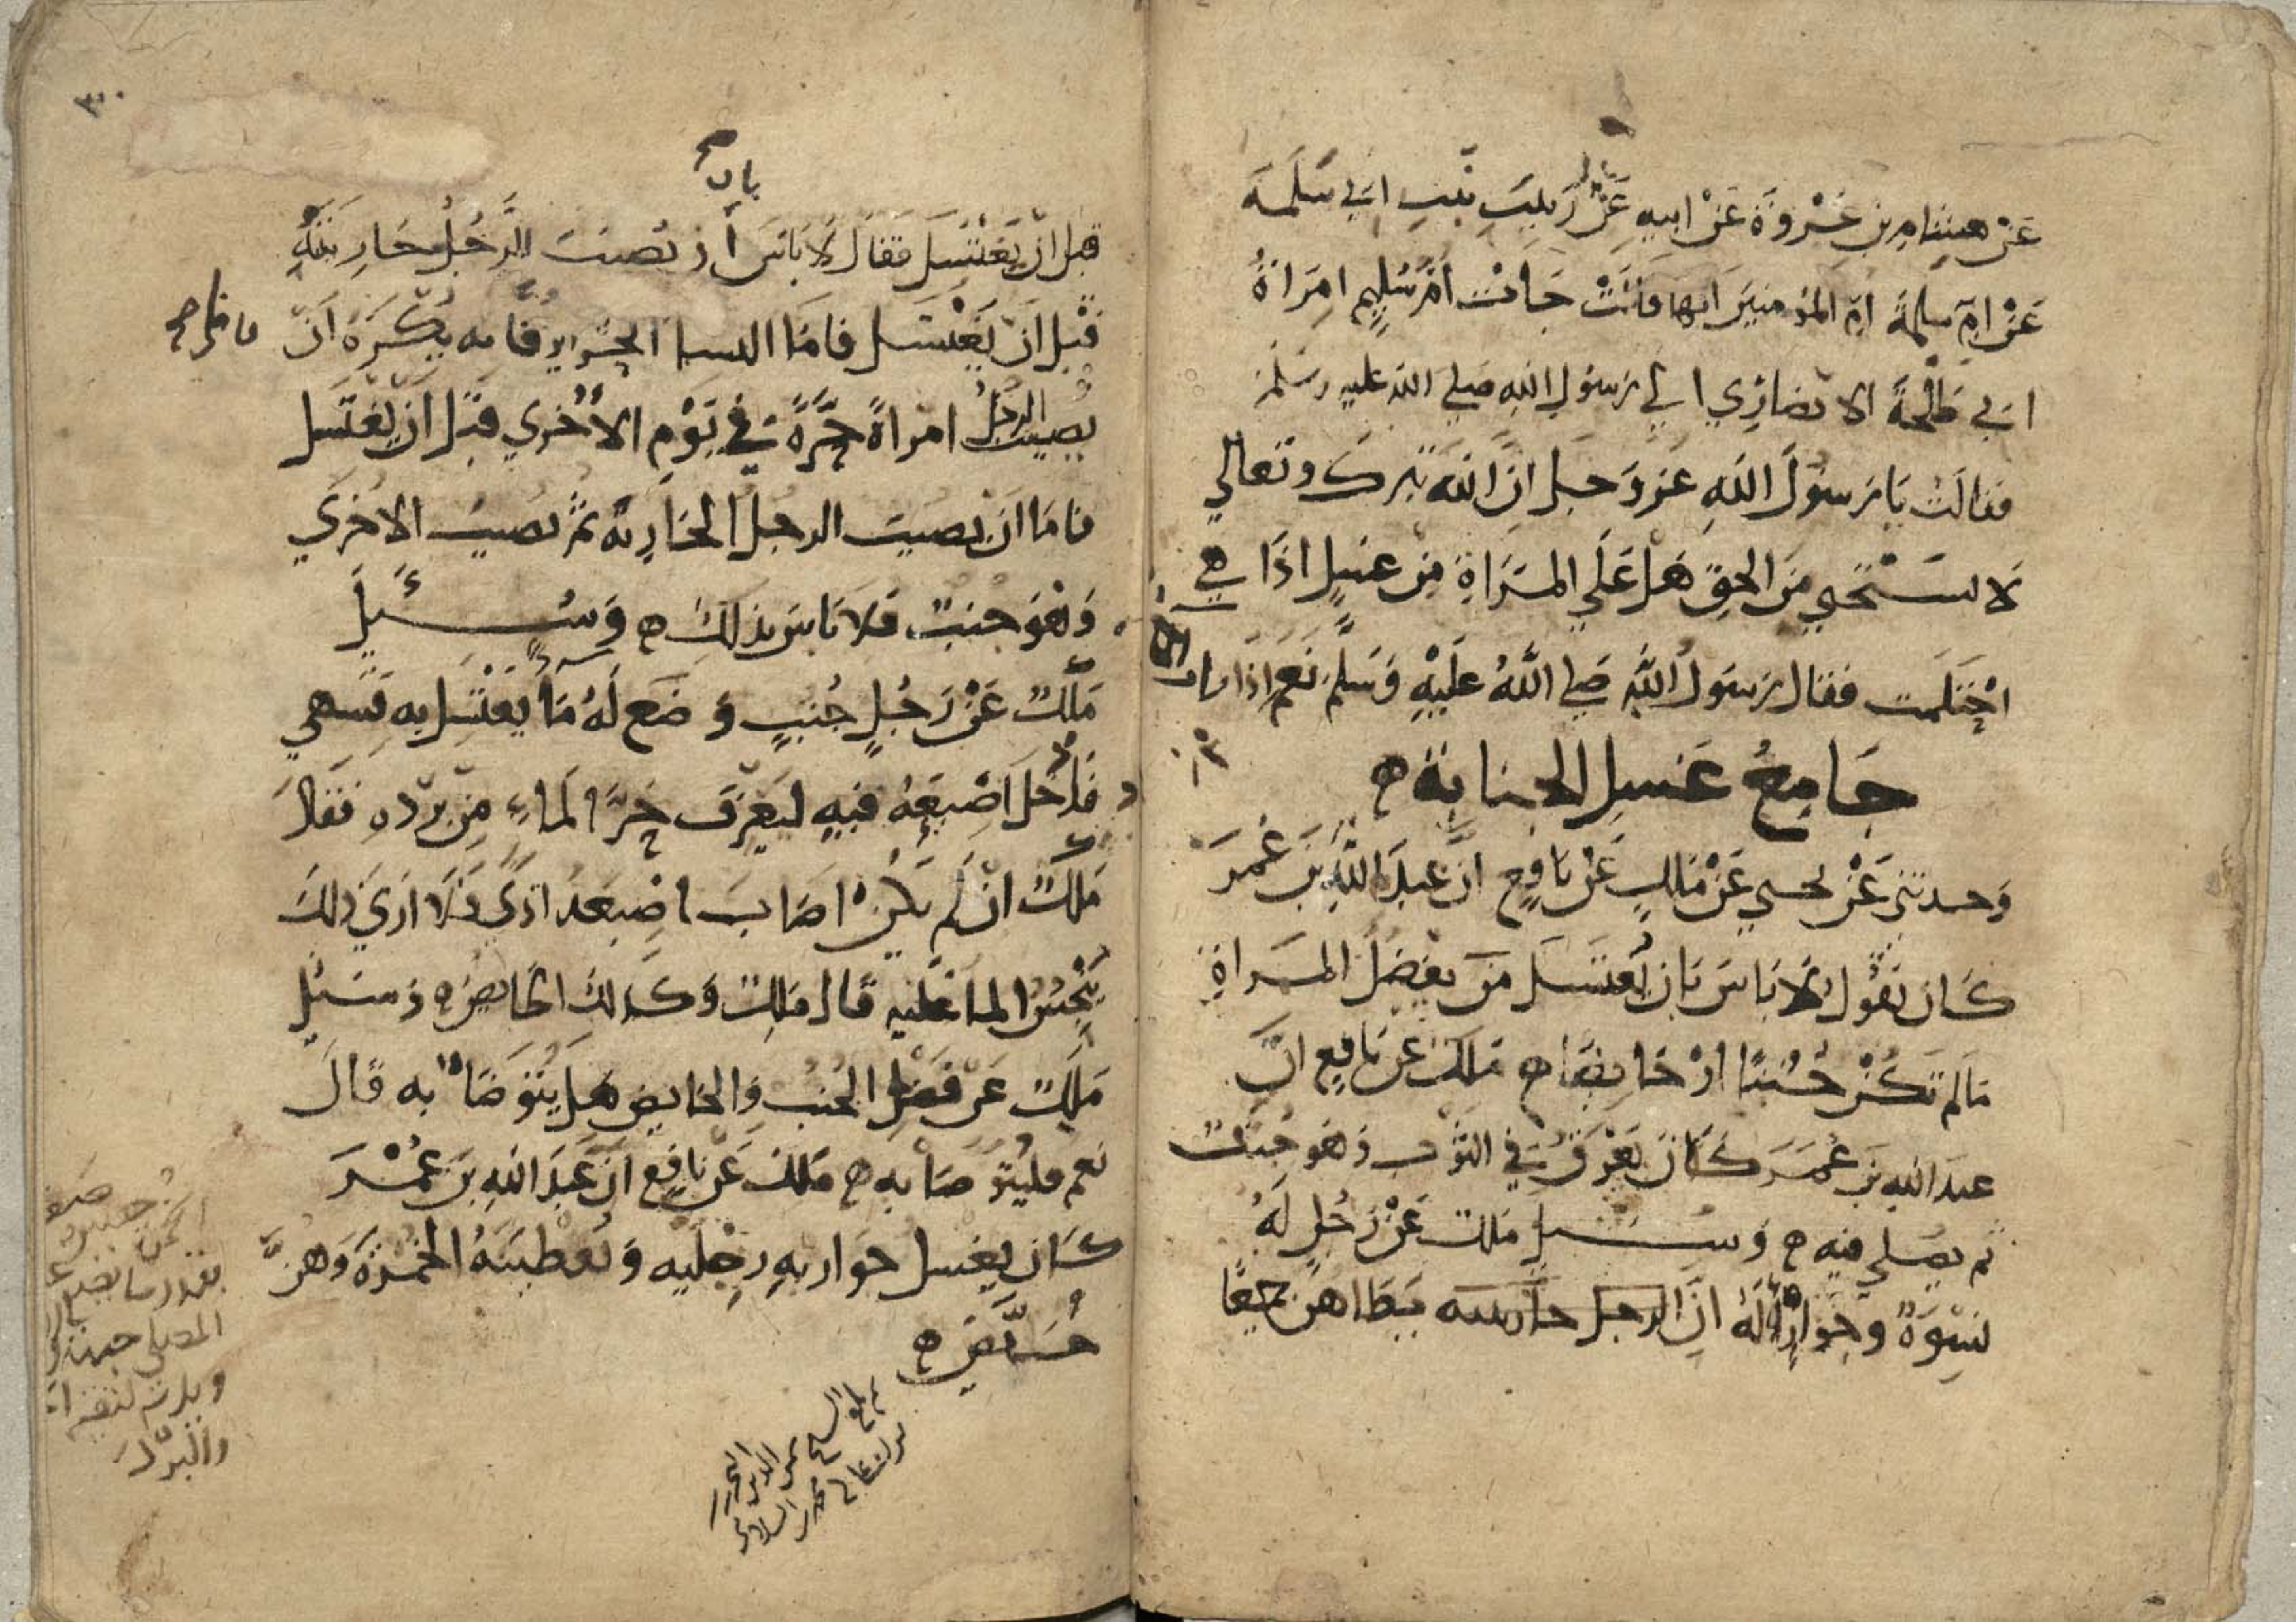 عَنْ هشَامِ بن عُرْوَةَ عَنْ ابيهِ عَنْ زَينَبَ بنتِ ابَي سَلَمَة
عَنْ امِّ سلمةَ امِّ المؤمنيَن انها قالَتْ جَاتْ امُّ سُلَيمٍ امرَاةُ
ابَي طَلْحَةَ الانصَارِي الي رَسولِ اللهِ صَلي اللهُ عليهِ وسَلَّم
فقالَتْ يَا رَسُولَ اللهِ عَز وَجَل انَّ اللهَ تبرَك وتَعالي
لَا يسْتَحْيي مِنَ الحقِّ هَل عَلَي المرَاةِ مِن غسْلٍ اذَا هِي
احْتَلَمت فقال رَسولُ اللهِ صَلي اللهُ عَلَيْهِ وَسَلَّم نَعَم اذا رات
جَامِعُ غسلِ الجنابَةِ ه
وَحدثني عَنْ يحيي عَنْ مَالكٍ عَنْ نافعٍ انَّ عبدَ اللهِ بنَ عُمَرَ
كَان يَقُولُ لَا بَاسَ بَان يُغتَسَلَ مِنْ بفَضلِ المرَاةِ
مَا لم تَكنْ جُنبًا اوْ حَايضًا ه مَلك عَن نَافِعٍ انَّ
عبدَ اللهِ بن عُمَرَ كَانَ يَعْرَقُ في الثوب وَهو جُنبٌ
ثم يصلي فيهِ ه وَسُئِلَ مَلك عَنْ رَجُلٍ لَهُ
نسْوَةٌ وجَوارٍ لَهُ انَّ الرجل جاريته يَطَاهن جميعًا
٣٠
باب
قبل ان يَغْتَسلَ فقال لَا بَاسَ أن يُصيبَ الرَّجُل جَارِيتهُ
قَبْل أنْ يَغْتَسل فامَّا النسا الحراير فَانه يُكْرَهُ انْ
يُصيبَ الرجلُ امراةً حُرَّةً في يَوْمِ الأُخري قَبل ان يَغْتَسل
فامَا انْ يُصيبَ الرجل الجَارِيَة ثم يُصيبُ الاخرَي
وَهْوَ جُنبٌ فلا بَاسَ بذلكَ ه وَسُئِلَ
مَلكٌ عَنْ رَجُلٍ جُنبٍ وُضعَ لَهُ مَا يَغْتَسِل بهِ فسَهي
فَادْخَلَ اصْبعَهُ فيهِ ليَعْرفَ حَرَّ الماءِ مِن بَرْدهِ فقال
مَلكٌ ان لم يكنْ اصَابَ اصْبعَه اذيً فلَا ارَي ذلكَ
يُنَجسُ الما عَلَيهِ قال مَلك وَكذلكَ الحَايض ه وَسئل
مَلكٌ عَن فَضل الجُنب وَالحايض هَل يتوَضا به قَالَ
نَعم فليتوضا به ه مَلك عَن نافعٍ انَّ عَبدَ اللهِ بنَ عُمْرَ
كَان يغسل جَواريهِ رجْلَيه وَيُعْطينَهُ الخمْرَةَ وَهنَّ
حُيَّضٌ ه